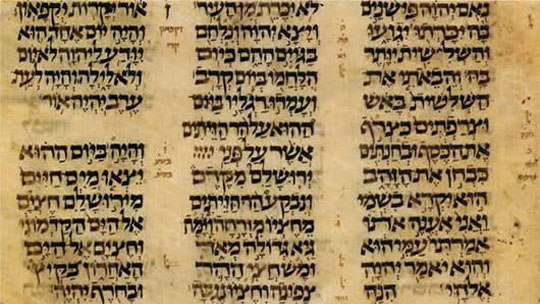 נאם יהוה פי שנים
בה יכרתו יגועו
והשלישית יותר
בה והבאתי את
השלשית באש
וצרפתים כצרף
את הכסף ובחנתים
כבחן את הזהב
הוא יקרא בשמי
ואני אענה אתו
אמרתי עמי הוא
והוא יאמר יהוה
אלהי הנה
לא יכרת מן העיר
ויצא יהוה ונלחם
בגוים ההם כיום
הלחמו ביום קרב
ועמדו רגליו ביום
ההוא על הר הזיתים
אשר על פני
ירושלם מקדם
ונבקע הר הזיתים
מחציו מזרחה וימה
גיא גדולה מאד
ומש חצי ההר
צפונה וחציו נגבה
וקפאון
קרי
אור יקרות יקפאון
והיה יום אחד הוא
יודע ליהוה לא יום
ולא לילה והיה לעת
ערב יהיה אור
והיה ביום ההוא
יצאו מים חיים
מירושלם חצים
אל הים הקדמוני
וחצים אל הים
האחרון בקיץ
ובחרף יהיה